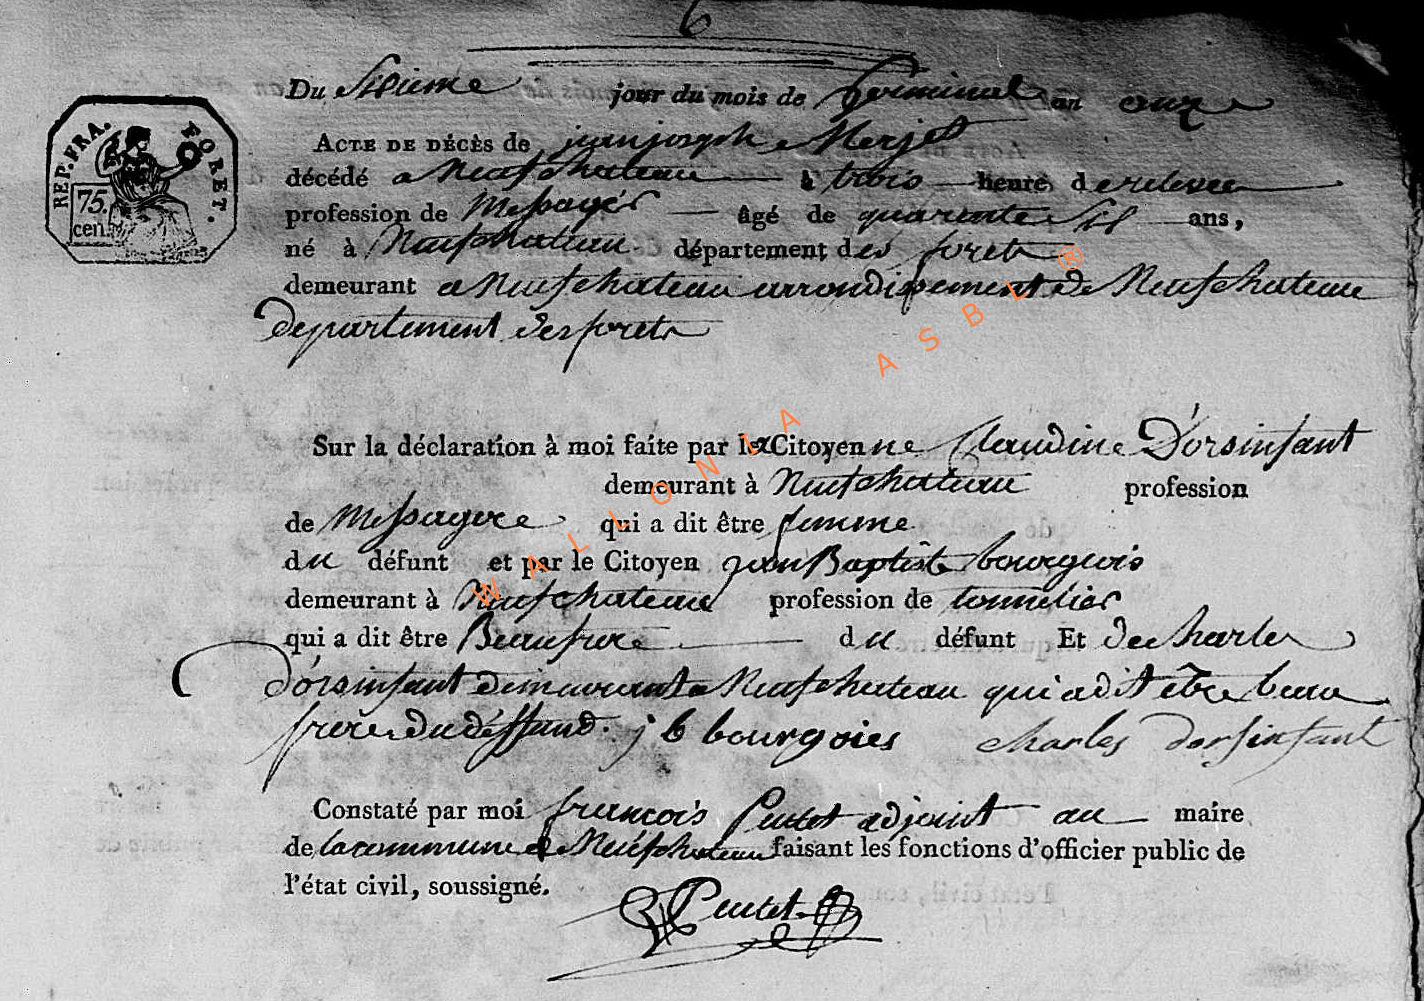 6
Du Sixieme jour du mois de Germinal an onze
REP. FRA. FORET.
75 cen.
ACTE DE DÉCÈS de jean joseph Merjet
décédé a Neufchateau à trois heure de relevee
profession de Messager âgé de quarente Six ans,
né à Neufchateau département des forets
demeurant a Neufchateau arrondissement de Neufchateau
departement des forets
Sur la déclaration à moi faite par la Citoyenne Claudine D'orsinfant
demeurant à Neufchateau profession
de Messagere qui a dit être femme
du défunt et par le Citoyen jean Baptiste bourgeois
demeurant à Neufchateau profession de tonnelier
qui a dit être Beaufrere du défunt Et de charle
D'orsinfant demeurant a Neufchateau qui a dit être beau
frere du déffund. j b bourgoies charles dorsinfant
Constaté par moi françois Pentet adjoint au maire
de la commune de Neufchateau faisant les fonctions d'officier public de
l'état civil, soussigné.
Pentet
WALLONIA ASBL ®